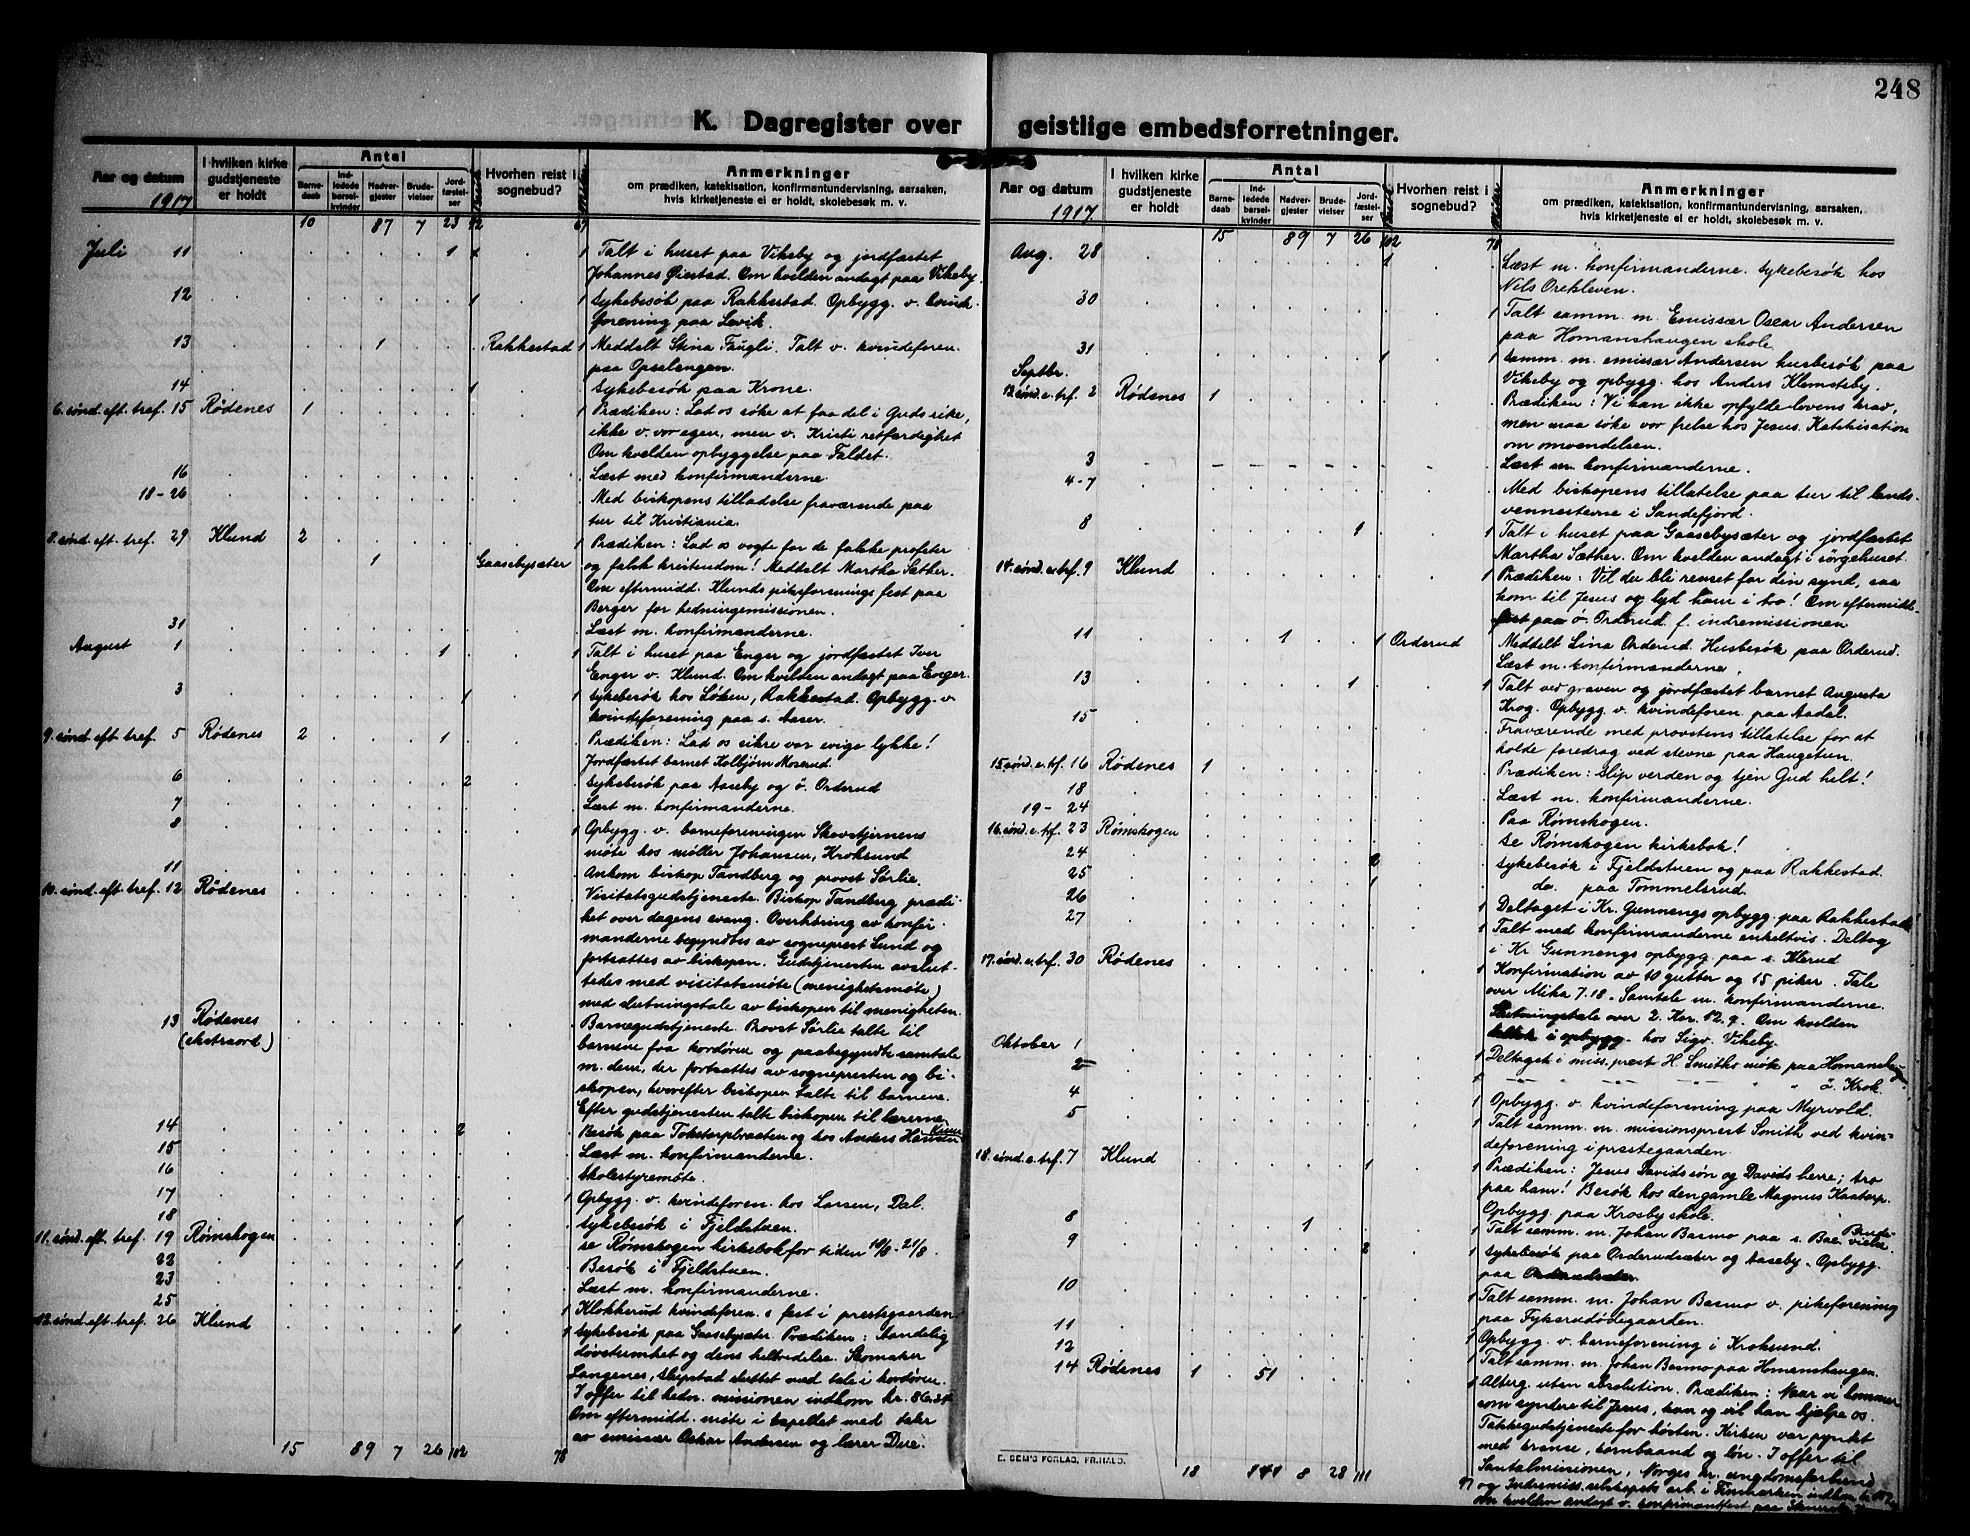 248
K. Dagregister over geistlige embedsforretninger.
Aar og datum 1917
I hvilken kirke gudstjeneste er holdt
Antal
Barne-daab
Ind-ledede barsel-kvinder
Nadver-gjester
Brude-vielser
Jord-fæstel-ser
Hvorhen reist i sognebud?
Anmerkninger
om prædiken, katekisation, konfirmantundervisning, aarsaken, hvis kirketjeneste ei er holdt, skolebesøk m. v.
10 87 7 23 92 67
Juli 11 1 1 Talt i huset paa Vikeby og jordfæstet
Johannes Øiestad. Om kvelden andagt paa Vikeby.
12 1 1 Sykebesøk paa Rakkestad. Opbygg. v. kvinde-
forening paa Levik.
13 1 Rakkestad 1 Meddelt Stina Faugli. Talt v. kvindeforen.
paa Opsalengen.
14 1 Sykebesøk paa Krone.
6. sønd. eft. tref. 15 Rødenes 1 1 Prædiken: Lad os søke at faa del i Guds rike,
ikke v. vor egen, men v. Kristi retfærdighet
Om kvelden opbyggelse paa Faldet.
16 Læst med konfirmanderne.
18-26 Med biskopens tilladelse fraværende paa
tur til Kristiania.
8. sønd. eft. tref. 29 Klund 2 1 Prædiken: Lad os vogte for de falske profeter
1 Gaasebysæter og falsk kristendom! Meddelt Martha Sæther.
Om eftermidd. Klunds pikeforenings fest paa
Berger for hedningemissionen.
31 Læst m. konfirmanderne.
August 1 1 1 Talt i huset paa Enger og jordfæstet Iver
Enger v. Klund. Om kvelden andagt paa Enger.
3 1 1 Sykebesøk hos Løken, Rakkestad. Opbygg. v.
kvindeforening paa s. Aaser.
9. sønd. eft. tref. 5 Rødenes 2 1 Prædiken: Lad os sikre vor evige lykke!
Jordfæstet barnet Kolbjørn Moserud.
6 2 Sykebesøk paa Aaseby og ø. Orderud
7 Læst m. konfirmanderne.
8 1 Opbygg. v. barneforeningen Skovstjernens
møte hos møller Johansen, Kroksund
11 Ankom biskop Tandberg og provst Sørlie.
10. sønd. eft. tref. 12 Rødenes Visitatsgudstjeneste. Biskop Tandberg prædi-
ket over dagens evang. Overhøring av konfir-
manderne begyndtes av sogneprest Lund og
fortsattes av biskopen. Gudstjenesten avslut-
tedes med visitatsmøte (menighetsmøte)
med slutningstale av biskopen til menigheten.
13 Rødenes (ekstraord.) Barnegudstjeneste. Provst Sørlie talte til
barnene fra kordøren og paabegyndte samtale
m. dem, der fortsattes av sognepresten og bi-
skopen, hvorefter biskopen talte til barnene.
Efter gudstjenesten talte biskopen til lærerne.
14 2 Besøk paa Toketorpbraaten og hos Anders Hansen
15 Læst m. konfirmanderne.
16 Skolestyremøte.
17 1 Opbygg. v. kvindeforen. hos Larsen, Dal.
18 1 Sykebesøk i Fjeldstuen.
11. sønd. eft. tref. 19 Rømskogen Se Rømskogen kirkebok for tiden 18/8-21/8.
22 1 Besøk i Fjeldstuen.
23 Læst m. konfirmanderne.
25 1 Klokkerud kvindeforen.s fest i prestegaarden.
12. sønd. eft. tref. 26 Klund 1 1 Sykebesøk paa Gaasebysæter. Prædiken: Aandelig
døvstumhet og dens helbredelse. Skomaker
Langenes, Slipstad sluttet med tale i kordøren.
I offer til hedn. missionen indkom kr. 86.24.
Om eftermidd. møte i kapellet med taler
av emissær Oskar Andersen og lærer Due.
15 89 7 26 102 78
Aar og datum 1917
I hvilken kirke gudstjeneste er holdt
Antal
Barne-daab
Ind-ledede barsel-kvinder
Nadver-gjester
Brude-vielser
Jord-fæstel-ser
Hvorhen reist i sognebud?
Anmerkninger
om prædiken, katekisation, konfirmantundervisning, aarsaken, hvis kirketjeneste ei er holdt, skolebesøk m. v.
15 89 7 26 102 78
Aug. 28 1 Læst m. konfirmanderne. Sykebesøk hos
Nils Orekleven.
30 1 Talt samm. m. Emissær Oscar Andersen
paa Homanshaugen skole.
31 1 1 Samm. m. emissær Andersen husbesøk paa
Vikeby og opbygg. hos Anders Klemsteby.
Septbr.
13 sønd. e. trf. 2 Rødenes 1 Prædiken: Vi kan ikke opfylde lovens krav,
men maa søke vor frelse hos Jesus. Katekisation
om omvendelsen.
3 Læst m. konfirmanderne.
4-7 Med biskopens tillatelse paa tur til lands-
vennestevne i Sandefjord.
8 1 1 Talt i huset paa Gaasebysæter og jordfæstet
Martha Sæther. Om kvelden andagt i sørgehuset.
14. sønd. e. trf. 9 Klund 1 Prædiken: Vil du bli renset for din synd, saa
kom til Jesus og lyd ham i tro! Om eftermidd.
fest paa ø. Orderud f. indremissionen
11 1 1 Orderud Meddelt Lina Orderud. Husbesøk paa Orderud.
Læst m. konfirmanderne.
13 1 1 Talt ved graven og jordfæstet barnet Augusta
Krog. Opbygg. v. kvindeforen. paa Aadal.
15 Fraværende med provstens tillatelse for at
holde foredrag ved stevne paa Haugetun.
15. sønd. e. trf. 16 Rødenes 1 Prædiken: Slip verden og tjen Gud helt!
18 Læst m. konfirmanderne.
19-24 Paa Rømskogen.
16. sønd. e. trf. 23 Rømskogen Se Rømskogen kirkebok!
24 2 Sykebesøk i Fjeldstuen og paa Rakkestad.
25 1 do. paa Tommelsrud.
26 1 Deltaget i Kr. Gunnengs opbygg. paa Rakkestad
27 1 Talt med konfirmanderne enkeltvis. Deltog
i Kr Gunnengs opbygg. paa s. Klerud
17. sønd. e. trf. 30 Rødenes 1 Konfirmation av 10 gutter og 15 piker. Tale
over Mika 7.18. Samtale m. konfirmanderne.
Slutningstale over 2. Kor. 12.9. Om kvelden
opbygg. hos Sigv. Vikeby.
Oktober 1 1 Deltaget i miss.prest H. Smiths møte paa Homansh.
2 1 -„- -„- -„- " " ø. Krok.
4 1 Opbygg. v. kvindeforening paa Myrvold.
5 1 Talt samm. m. missionsprest Smith ved kvin-
deforening i prestegaarden.
18. sønd. e. trf. 7 Klund 1 1 Prædiken: Jesus Davids søn og Davids herre; tro
paa ham! Besøk hos den gamle Magnus Kaatorp.
Opbygg. paa Krosby skole.
8 1 1 Talt samm. m. Johan Basmo paa s. Bøe. Brude-vielse.
9 2 1 Sykebesøk paa Orderudsæter og Aaseby. Opbygg.
paa Orderudsæter.
10 1 Talt samm. m. Johan Basmo v. pikeforening
paa Fykerudødegaarden.
11 1 Opbygg. v. barneforening i Kroksund.
12 1 Talt samm. m. Johan Basmo paa Homanshaugen.
14 Rødenes 1 51 1 Alterg. uten absolution. Prædiken: Naar vi kommer
som syndere til Jesus, kan og vil han hjælpe os.
Takkegudstjeneste for høsten. Kirken var pyntet
med kranse, kornbaand og løv. I offer til
Santalmissionen, Norges kr. ungdomsforbund
og Indremiss.selskapets arb. i Finmarken indkom kr.
Om kvelden andagt v. konfirmantfest paa
18 141 8 28 111 97
E. SEM'S FORLAG, FR.HALD.